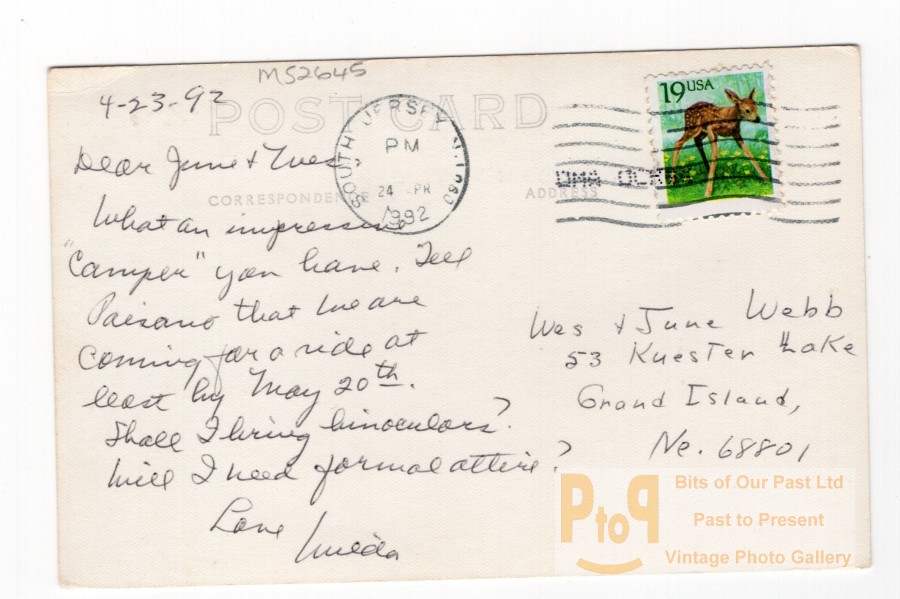 MS2645
4-23-92
POST CARD
19 USA
SOUTH JERSEY N.J. 080
PM
24 APR
1992
CORRESPONDENCE
ADDRESS
Dear June & Wes,
What an impressive
"Camper" you have. Tell
Paisano that we are
coming for a ride at
least by May 20th.
Shall I bring binoculars?
Will I need formal attire?
Love
Wes & June Webb
53 Kuester Lake
Grand Island,
Ne. 68801
PtoP
Bits of Our Past Ltd
Past to Present
Vintage Photo Gallery